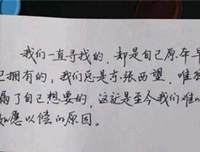 我们一直寻找的,却是自己原本早
已拥有的,我们总是东张西望,唯
漏了自己想要的,这就是至今我们难以
如愿以偿的原因。